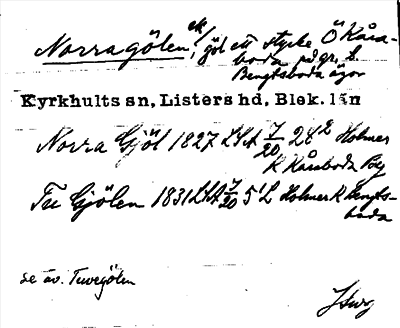 Norragölen, ek/ göl ett stycke Ö Kåra-
boda på gr. t.
Bengtsboda ägor
Kyrkhults sn, Listers hd, Blek. län
Norra Gjöl 1827 LSA 7/20 28² Holmer
K Kåraboda By
Tu Gjölen 1831 LSA 7/20 5¹ L Holmer K Bengts-
boda
se äv. Tuvegölen